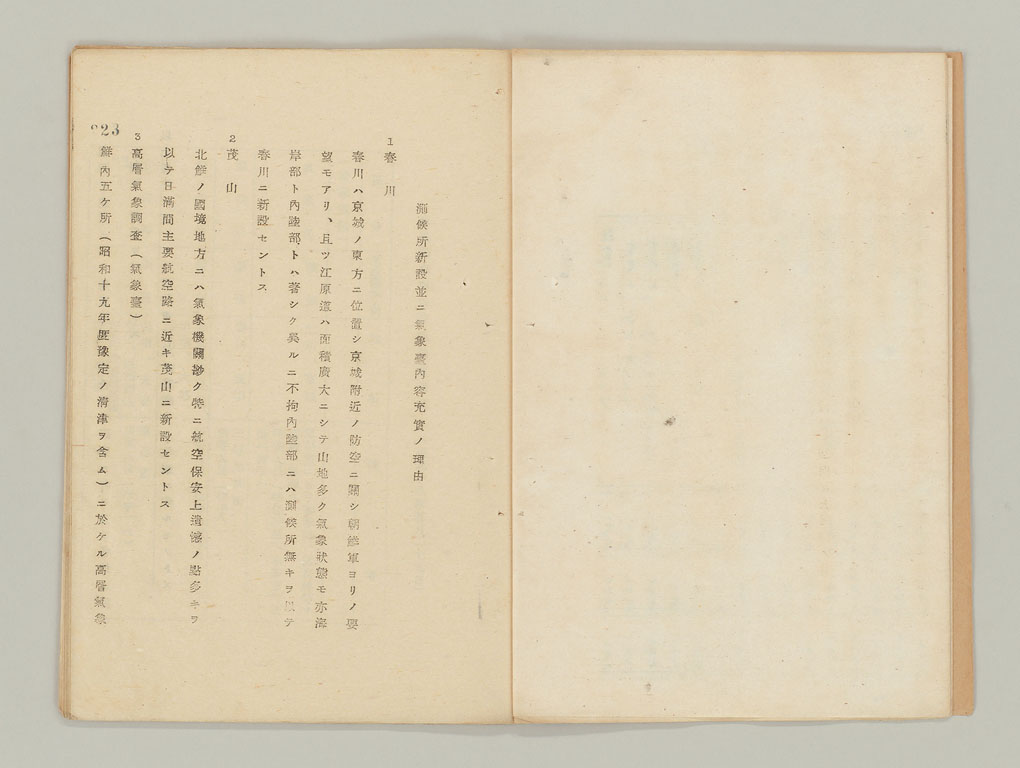 測候所新設並ニ氣象臺內容充實ノ理由
1 春川
春川ハ京城ノ東方ニ位置シ京城附近ノ防空ニ關シ朝鮮軍ヨリノ要
望モアリ、且ツ江原道ハ面積廣大ニシテ山地多ク氣象狀態モ亦海
岸部ト內陸部トハ著シク異ルニ不拘內陸部ニハ測候所無キヲ以テ
春川ニ新設セントス
2 茂山
北鮮ノ國境地方ニハ氣象機關尠ク特ニ航空保安上遺憾ノ點多キヲ
以テ日滿間主要航空路ニ近キ茂山ニ新設セントス
3 高層氣象調査(氣象臺)
鮮內五ケ所(昭和十九年度豫定ノ淸津ヲ含ム)ニ於ケル高層氣象
823